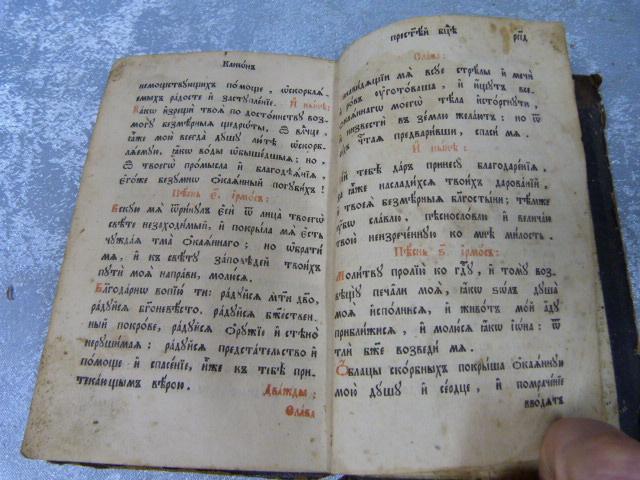 Канѡнъ
немощствующихъ помоще, ѡскорблѧ-
емыхъ радосте и заступленїе. И нынѣ:
Какѡ изрещи твоѧ по достоинству воз
могу безмѣрныѧ щедрѡты, ѽ влⷣчце,
ꙗже мою всегда душу лютѣ ѡскорб-
лѧемую, ꙗкѡ воды ѡбышедшыѧ; но,
ѽ твоегѡ промысла и благодѣѧнїѧ,
егѡже безумнѡ ѡкаѧнный погубихъ!
Пѣснь є҃. ірмосъ:
Вскую мѧ ѿринулъ еси ѿ лица твоегѡ
свѣте незаходимый, и покрыла мѧ есть
чуждаѧ тма ѡкаѧннаго; но ѡбрати
мѧ, и къ свѣту заповѣдей твоихъ
пути моѧ направи, молюсѧ.
Благодарнѡ вопїю ти: радуйсѧ мт҃и дв҃о,
радуйсѧ бг҃оневѣсто. радуйсѧ бж҃ествен-
ный покрове, радуйсѧ ѻружїе и стѣно
нерушимаѧ: радуйсѧ предстательство и
помоще и спасенїе, иже къ тебѣ при-
текающымъ вѣрою.
Дважды:
Слава
прест҃ѣй бц҃ѣ
Слава:
мѧ всуе стрѣлы и мечи
и ровъ уготоваша, и ищутъ все-
ѡкаѧннагѡ моегѡ тѣла исторгнути,
и низвести въ землю желаютъ: но ѿ
сихъ чт҃аѧ предваривши, спаси мѧ.
И нынѣ:
Кїй тебѣ даръ принесу благодаренїѧ,
за ꙗже насладихсѧ твоихъ дарованїй,
и твоеѧ безмѣрныѧ благостыни; тѣмже
убѡ славлю, пѣснословлю и величаю
твою неизреченную ко мнѣ милость.
Пѣснь ѕ҃. ірмосъ:
Молитву пролїю ко гд҃у, и тому воз-
вѣщу печали моѧ, ꙗкѡ ѕѡлъ душа
моѧ исполнисѧ, и животъ мой аду
приближисѧ, и молюсѧ ꙗкѡ іѡна: ѿ
тли бж҃е возведи мѧ.
Ѻблацы скорбныхъ покрыша ѡкаѧнную
мою душу и сердце, и помраченїе
вводѧтъ